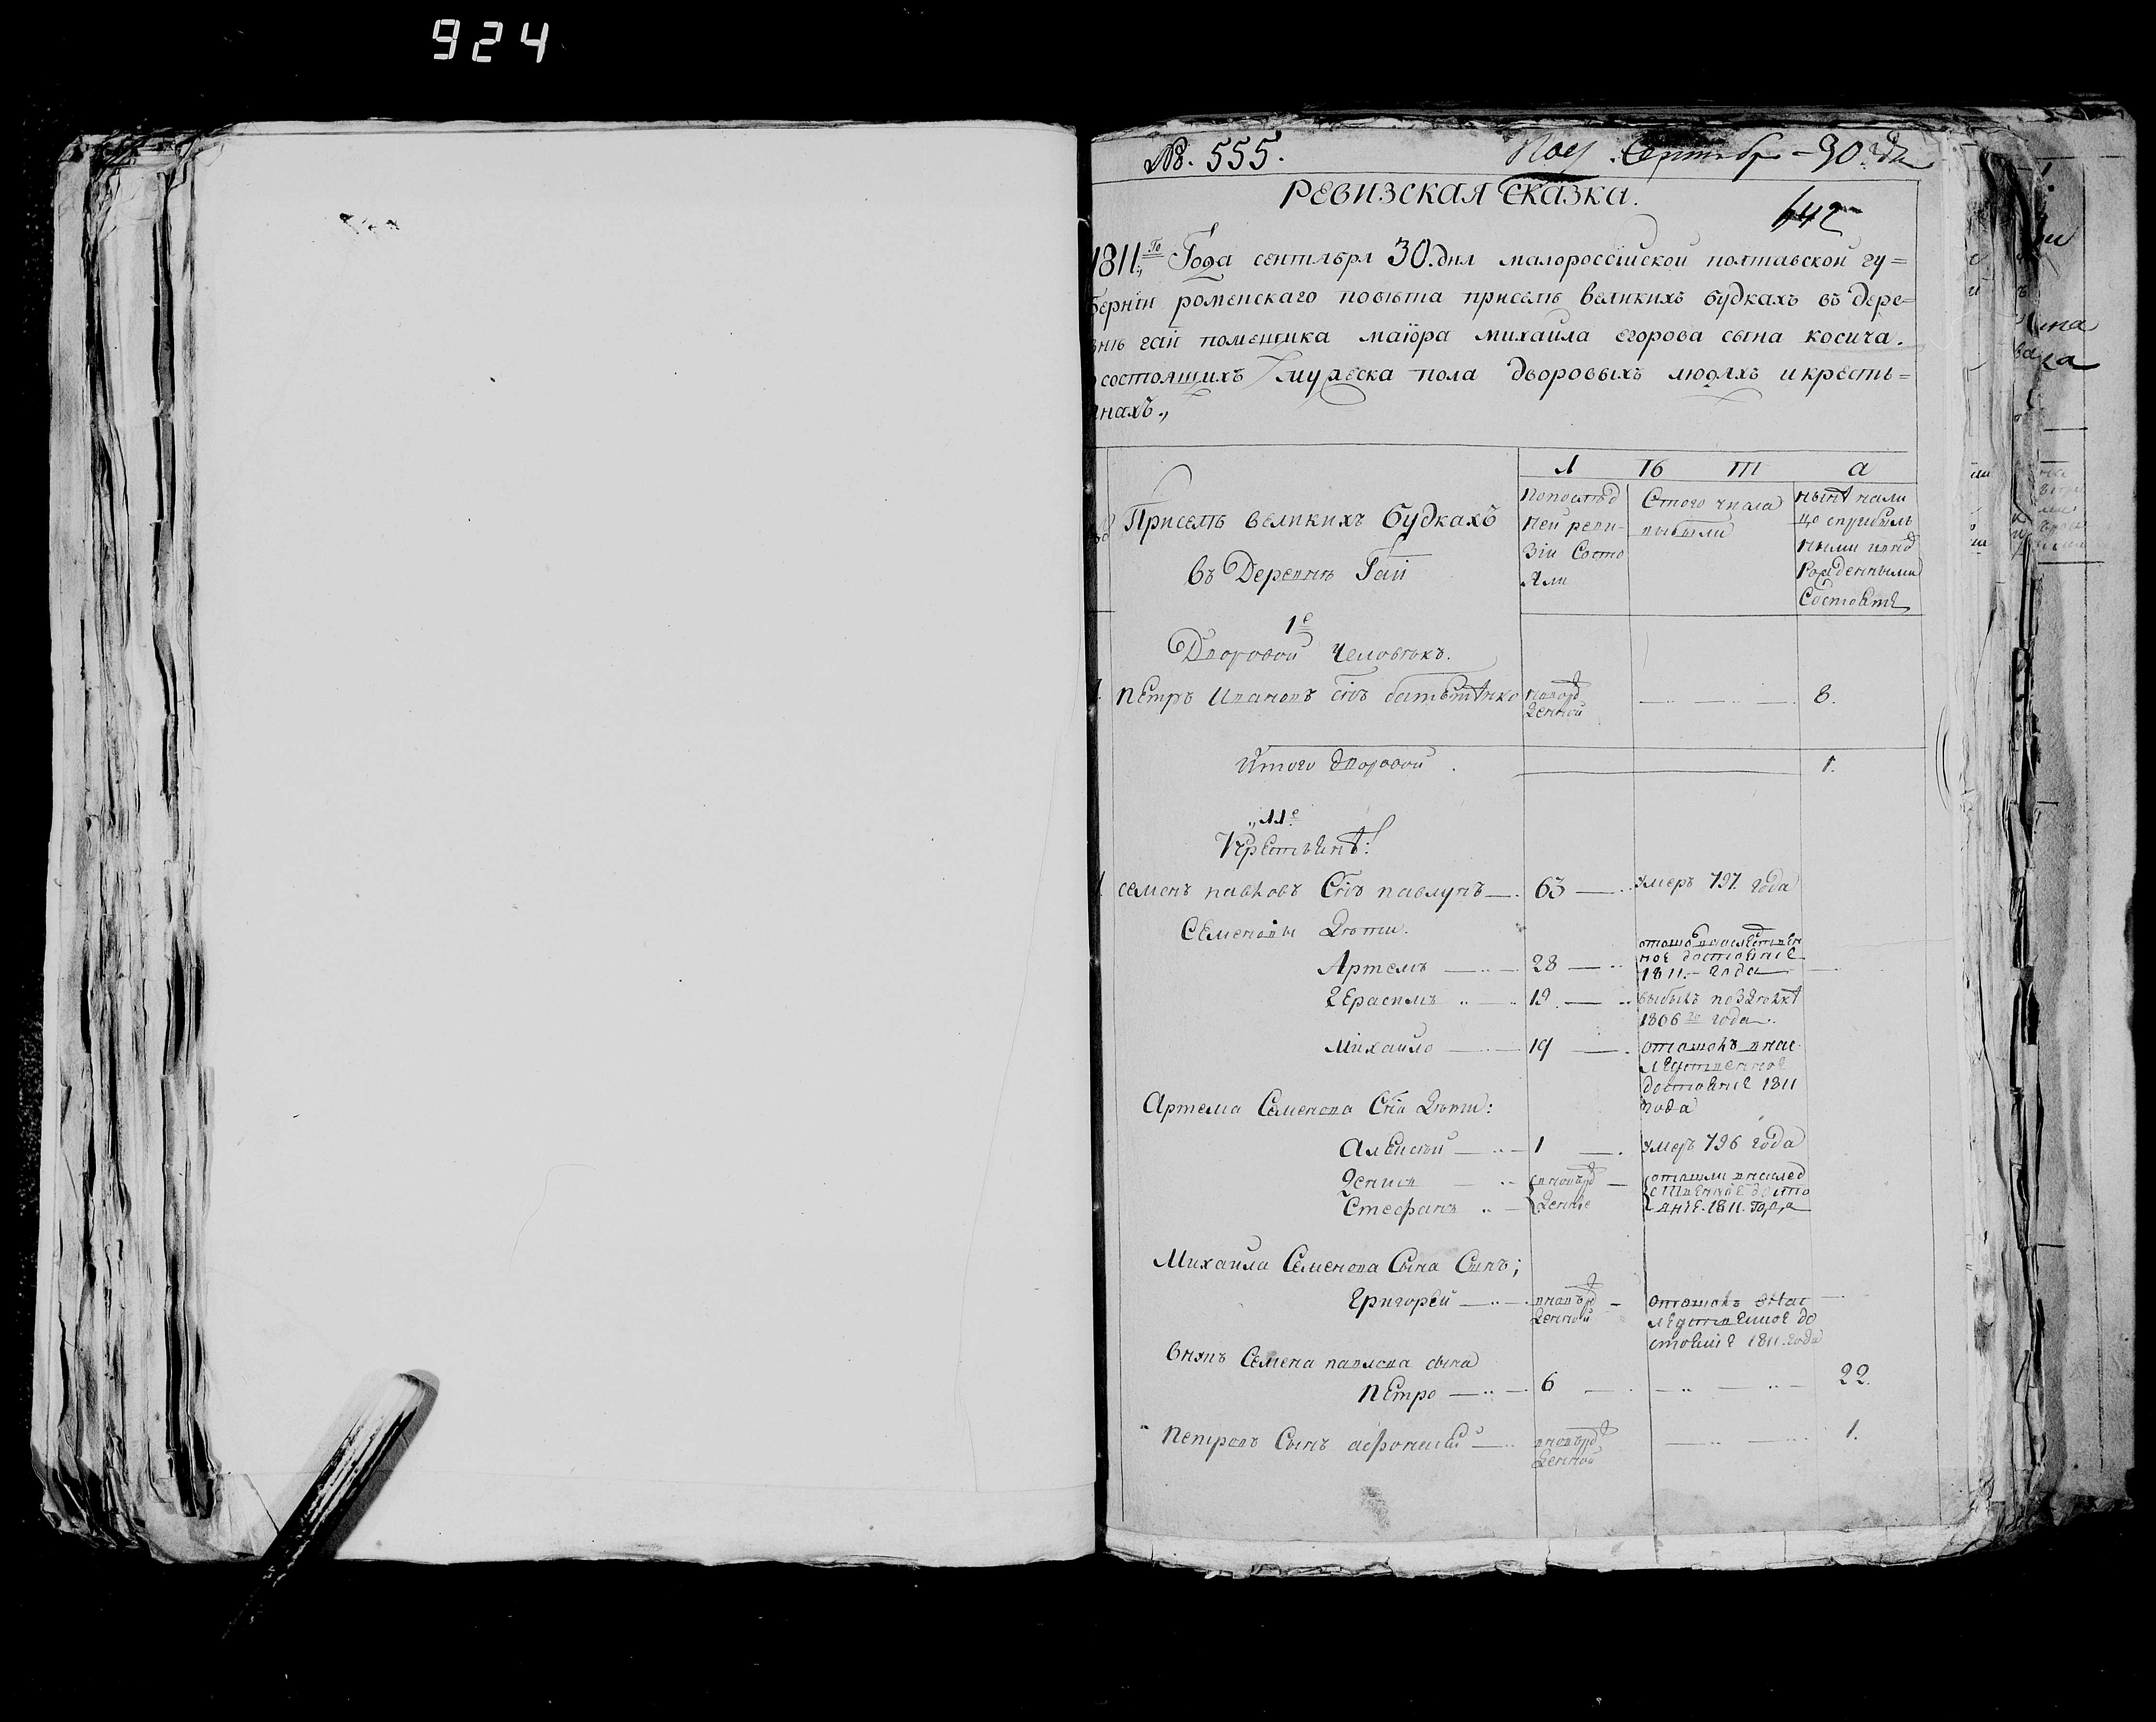 924
№. 555. Сентябр - 30. дн
РЕВИЗСКАЯ СКАЗКА.
642
1811.го Года сентября 30. дня малороссійской полтавской гу=
берніи роменскаго повѣта приселѣ великихъ будкахъ въ дере=
внѣ гаи помещика маіора михаила егорова сына косича.
состоящихъ мужеска пола дворовыхъ людяхъ и кресть=
янахъ.,
Л Ѣ Т а
Приселѣ великихъ будкахъ
въ Деревнѣ Гаи
Попослѣд
ней реви-
зіи Состо
яли
Стого числа
выбыли
нынѣ нали
цо сприбыль
ными ипод
Рожденными
Состоитъ
1е
Дворовой Человѣкъ.
Петръ Ивановъ снъ
новорж
денной
8.
Итого дворовой 1.
Крестьянѣ:
семенъ павловъ Снъ павлунъ 63 умеръ 797 года
Семеновы Дѣти.
Артемъ 28
отошолвнаследствен
ное достояніе
1811 - года
Герасимъ 19
выбылъ по
1806го года
Михайло 19
отошолъ внас
ледственное
достояніе 1811
года
Артема Семенова Сна Дѣти:
Алексѣй 1 умеръ 796 года
Денисъ
Стефанъ
вноворж
денніе
отошли внаслед
ственное досто
яніе. 1811. года
Михаила Семенова Сына Сынъ;
Григорей
вноворж
денной
отошолъ внас
ледственное до
стояніе 1811. года
внукъ Семена павлова сына
Петро 6 22.
Петровъ Сынъ афонасій
вноворж
денной
1.